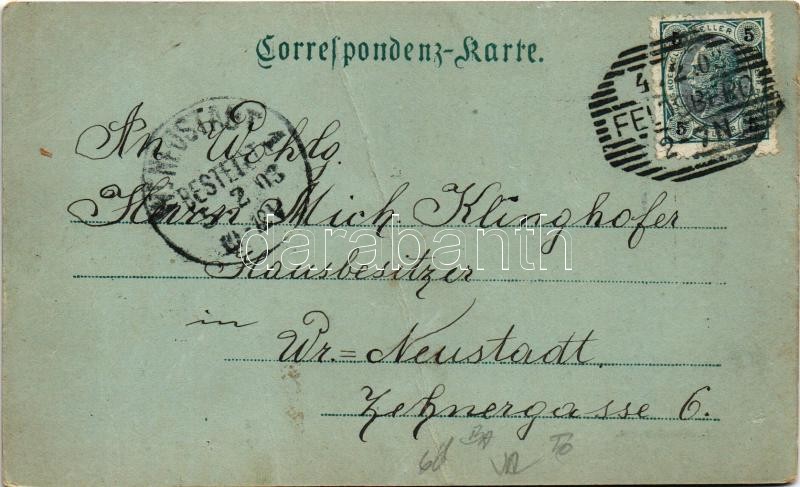 Correspondenz-Karte.
5 HELLER 5
5 5
4 2 03
FELD BERG
2-7N
NEUSTADT
BESTELLT
5 2 03
An Wohlg.
Herrn Mich. Klinghofer
Hausbesitzer
in
Wr.=Neustadt
Zehnergasse 6.
darabanth